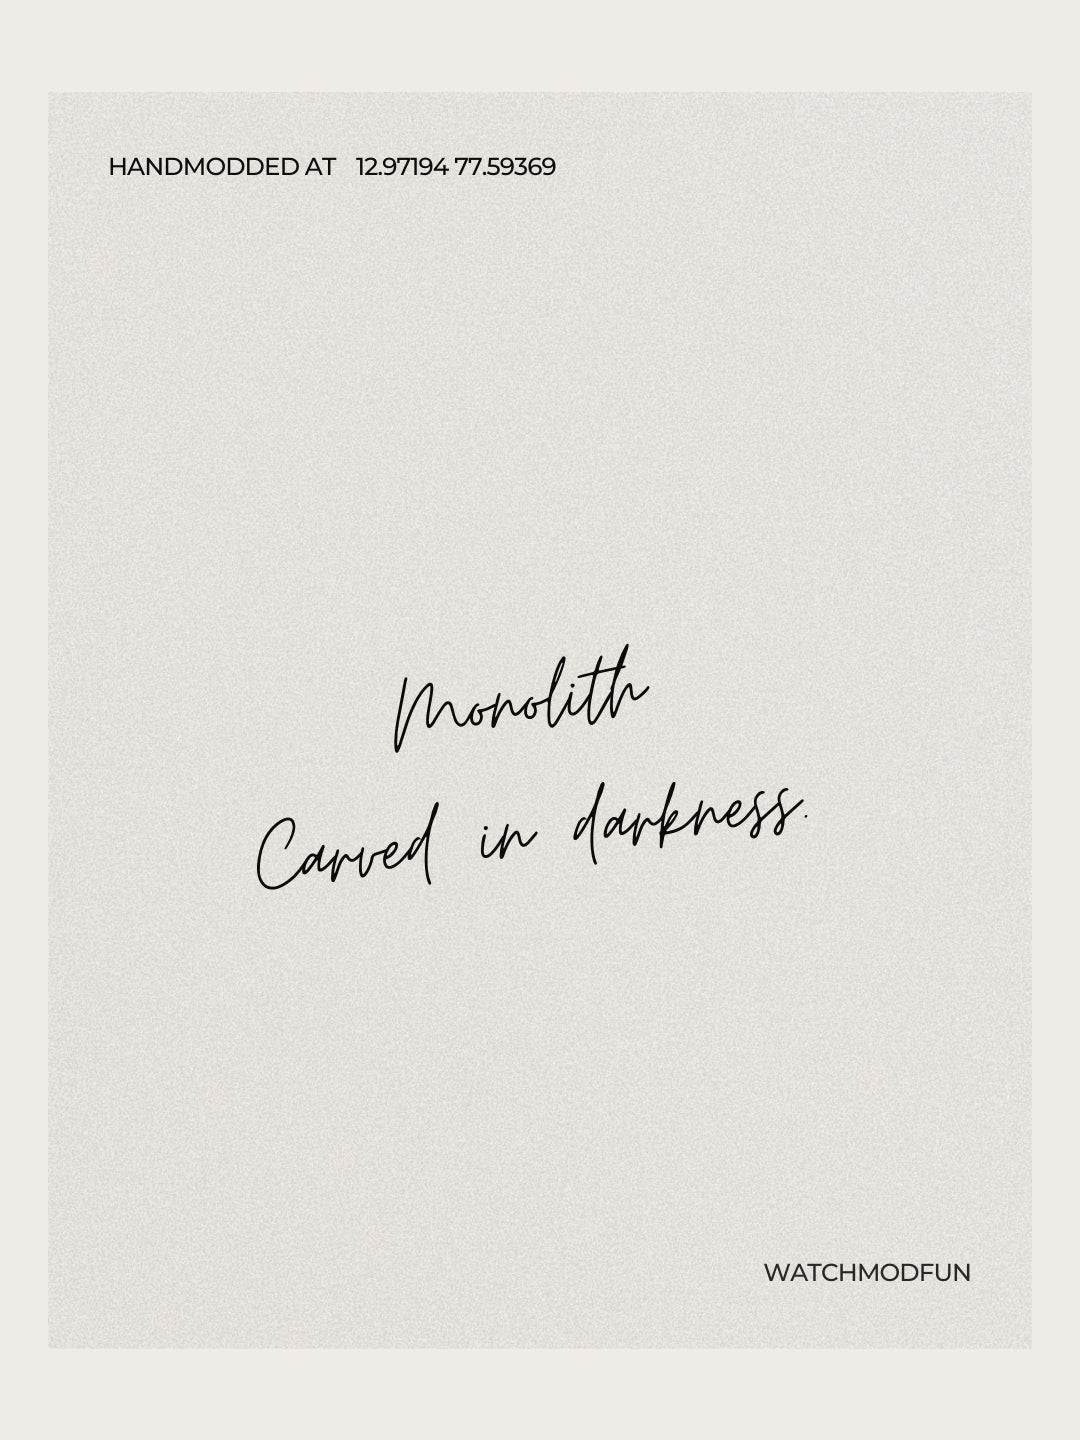 HANDMODDED AT 12.97194 77.59369
Monolith
Carved in darkness.
WATCHMODFUN